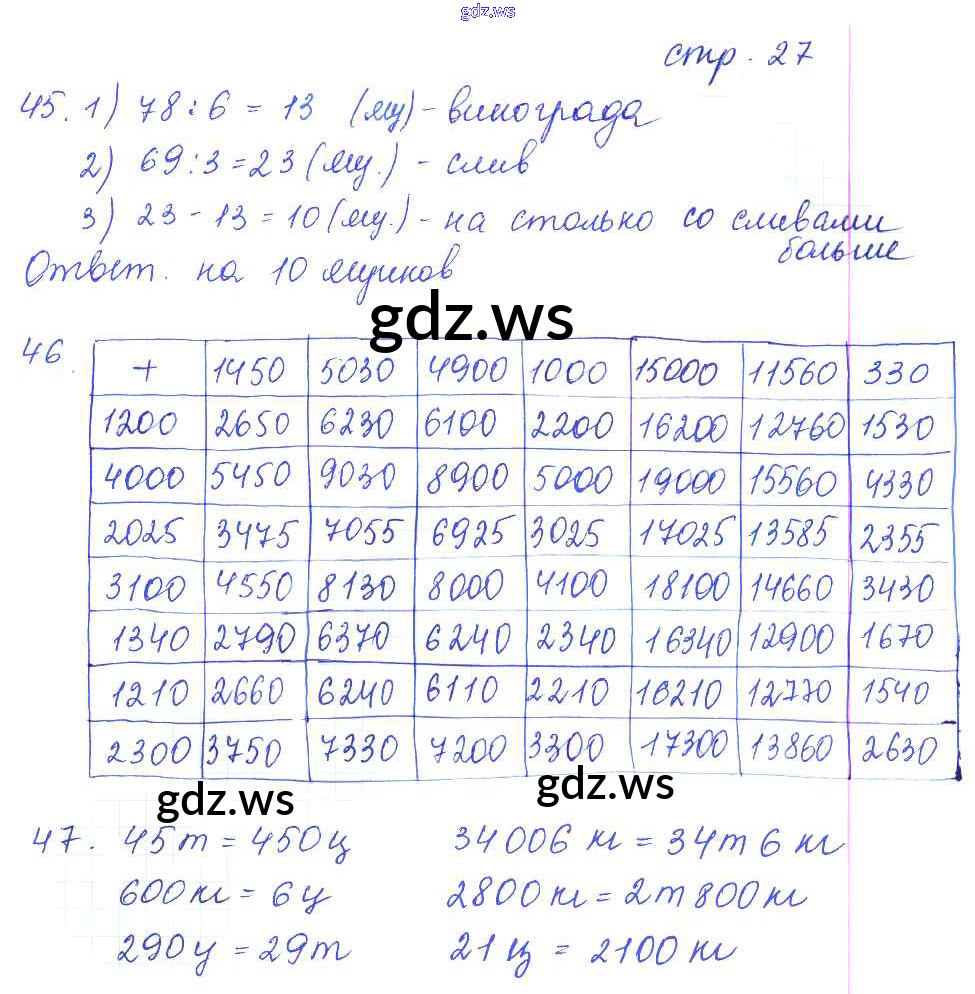 gdz.ws
стр. 27
45. 1) 78 : 6 = 13 (ящ) - винограда
2) 69 : 3 = 23 (ящ.) - слив
3) 23 - 13 = 10 (ящ.) - на столько со сливами
больше
Ответ. на 10 ящиков
gdz.ws
46.
+ 1450 5030 4900 1000 15000 11560 330
1200 2650 6230 6100 2200 16200 12760 1530
4000 5450 9030 8900 5000 19000 15560 4330
2025 3475 7055 6925 3025 17025 13585 2355
3100 4550 8130 8000 4100 18100 14660 3430
1340 2790 6370 6240 2340 16340 12900 1670
1210 2660 6240 6110 2210 16210 12770 1540
2300 3750 7330 7200 3300 17300 13860 2630
gdz.ws gdz.ws
47. 45т = 450ц 34006 кг = 34т 6 кг
600кг = 6ц 2800кг = 2т 800кг
290ц = 29т 21ц = 2100 кг